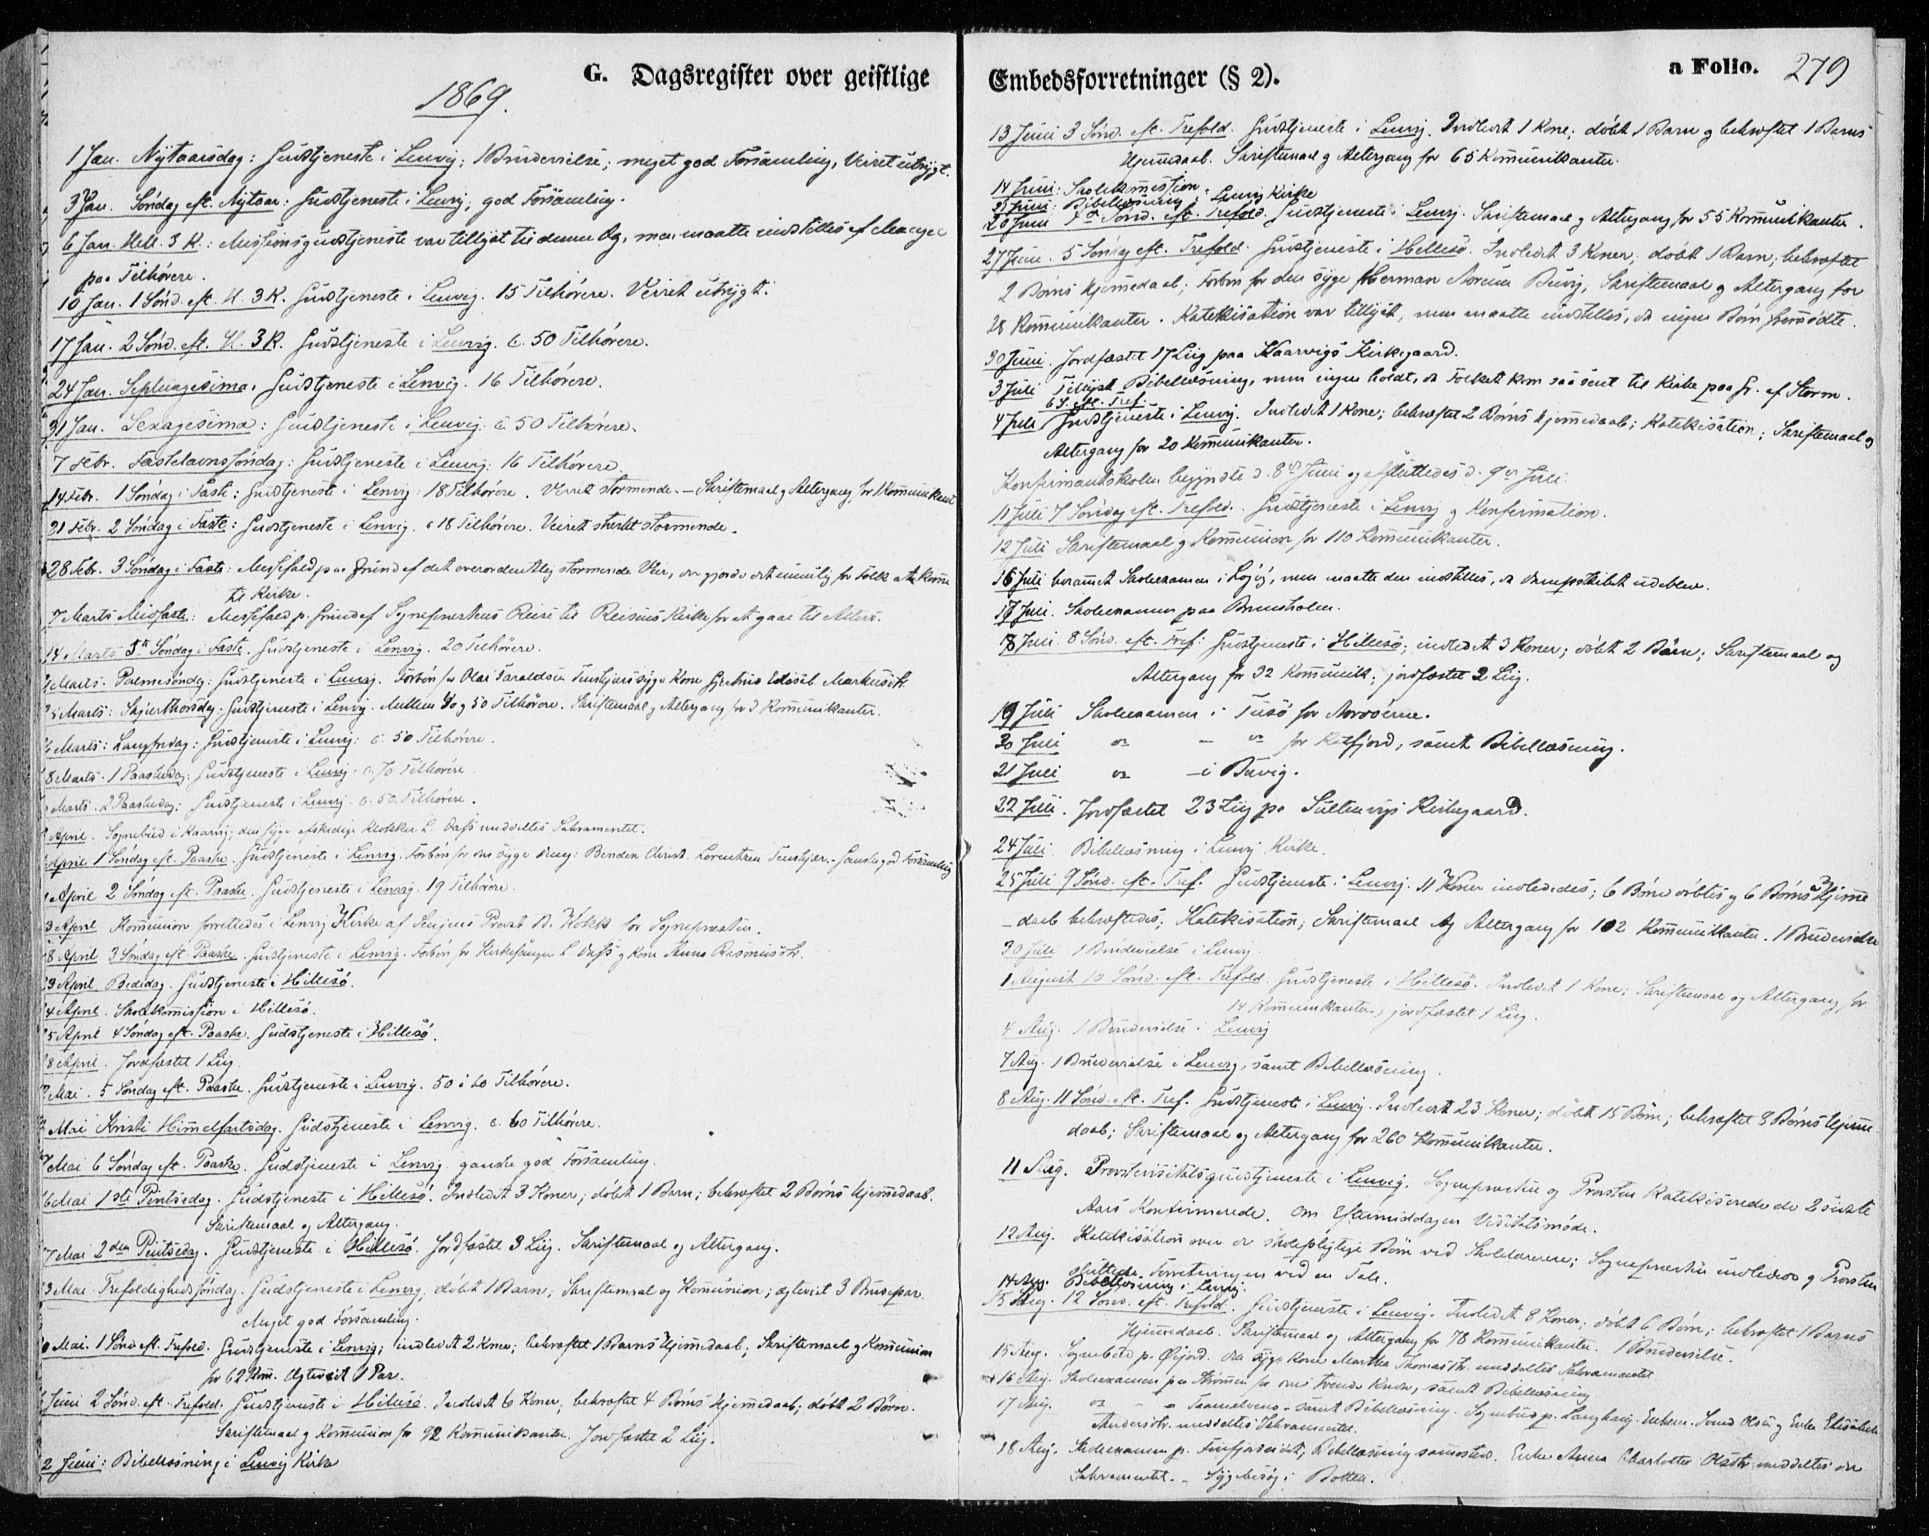 G. Dagsregister over geistlige
1869.
1 Jan. Nytaarsdag: Gudstjeneste i Lenvig; 1 Brudevielse; meget god Forsamling, Veiret utrygt.
3 Jan. Söndag eft. Nytaar: Gudstjeneste i Lenvig; god Forsamling.
6 Jan. Hell. 3 K.: Missionsgudstjeneste var tillyst til denne Dag, men maatte indstilles af Mangel
paa Tilhörere.
10 Jan. 1 Sönd. eft. H. 3 K. Gudstjeneste i Lenvig. 15 Tilhörere. Veiret utrygt.
17 Jan. 2 Sönd. eft. H. 3 K. Gudstjeneste i Lenvig. c. 50 Tilhörere.
24 Jan. Septuagesima. Gudstjeneste i Lenvig. 16 Tilhörere.
31 Jan. Sexagesima: Gudstjeneste i Lenvig. c. 50 Tilhörere.
7 Febr. Fastelavnssöndag: Gudstjeneste i Lenvig: 16 Tilhörere.
14 Febr. 1 Söndag i Faste: Gudstjeneste i Lenvig. 18 Tilhörere. Veiret stormende. – Skriftemaal og Altergang for 1 Kommunikant
21 Febr. 2 Söndag i Faste: Gudstjeneste i Lenvig. c 18 Tilhörere. Veiret stærkt stormende.
28 Febr. 3 Söndag i Faste: Messefald paa Grund af det overordentlig stormende Veir, der gjorde det umulig for Folk at komme
til Kirke.
7 Marts Midfaste: Messefald p. Grund af Sognepræstens Reise til Reisens Kirke for at gaae til Alters.
14 Marts 5te Söndag i Faste. Gudstjeneste i Lenvig. 20 Tilhörere.
Marts. Palmesöndag: Gudstjeneste i Lenvig. Forbön for Olai Taraldsen syge Kone Markusdtr.
5 Marts: Skjærthorsdag: Gudstjeneste i Lenvig. Mellem 40 og 50 Tilhörere. Skriftemaal og Altergang for 3 Kommunikanter.
6 Marts: Langfredag: Gudstjeneste i Lenvig: c. 50 Tilhörere.
8 Marts. 1 Paaskedag: Gudstjeneste i Lenvig. c. 70 Tilhörere.
Marts. 2 Paaskedag: Gudstjeneste i Lenvig. c. 50 Tilhörere.
April. Sognebud i Kaarvig; den syge afskedige Klokker L. Dass meddeltes Sakramentet.
April 1 Söndag eft. Paaske. Gudstjeneste i Lenvig. Forbön for den syge Christ. Lorentzen – Ganske god Forsamling
April 2 Söndag eft. Paaske. Gudstjeneste i Lenvig. 19 Tilhörere.
3 April Kommunion forrettedes i Lenvig Kirke af Senjens Provst for Sognepræsten.
8 April 3 Söndag eft. Paaske. Gudstjeneste i Lenvig. Forbön for Kirkesanger L Dass og Kone Anna Rasmusdtr.
3 April Bededag. Gudstjeneste i Hillesö.
4 April. Skolekommission i Hillesö.
5 April 4 Söndag eft. Paaske. Gudstjeneste i Hillesö.
8 April. Jordfæstet 1 Liig
Mai. 5 Söndag eft. Paaske. Gudstjeneste i Lenvig. 50 à 60 Tilhörere.
Mai Kristi Himmelfartsdag. Gudstjeneste i Lenvig. c. 60 Tilhörere.
Mai 6 Söndag eft. Paaske. Gudstjeneste i Lenvig. ganske god Forsamling.
6 Mai 1ste Pintsedag. Gudstjeneste i Hillesö. Indledt 3 Koner; döbt 1 Barn; bekræftet 2 Börns Hjemmedaab.
Skriftemaal og Altergang.
7 Mai 2den Pintsedag. Gudstjeneste i Hillesö. Jordfæstet 3 Liig. Skriftemaal og Altergang.
3 Mai Trefoldighedssöndag. Gudstjeneste i Lenvig; döbt 1 Barn; Skriftemaal og Kommunion; ægteviet 3 Brudepar.
Meget god Forsamling.
Mai. 1 Sönd. eft. Trefold. Gudstjeneste i Lenvig; indledt 2 Koner; bekræftet 1 Barns Hjemmedaab; Skriftemaal og Kommunion
for 62 Kom. Ægteviet 1 Par.
Juni 2 Sönd. eft. Trefold. Gudstjeneste i Hillesö. Indledt 6 Koner; bekræftet 4 Börns Hjemmedaab; döbt 2 Börn.
Skriftemaal og Kommunion for 92 Kommunikanter. Jordfæstet 2 Liig.
2 Juni: Bibellæsning i Lenvig Kirke
Embedsforretninger (§ 2).
a Folio. 279
13 Juni 3 Sönd. eft. Trefold. Gudstjeneste i Lenvig. Indledt 1 Kone; döbt 1 Barn og bekræftet 1 Barns
Hjemmedaab. Skriftemaal og Altergang for 65 Kommunikanter.
14 Juni: Skolekommission.
Juni: Bibellæsning i Lenvig Kirke
20 Juni Sönd. eft. Trefold. Gudstjeneste i Lenvig. Skriftemaal og Altergang for 55 Kommunikanter.
27 Juni. 5 Söndag eft. Trefold. Gudstjeneste i Hillesö. Indledt 3 Koner; döbt 1 Barn; bekræftet
2 Börns Hjemmedaab; Forbön for den syge Herman Buvig; Skriftemaal og Altergang for
28 Kommunikanter. Katekisation var tillyst, men maatte indstilles, da ingen Börn fremmödte.
30 Juni. Jordfæstet 17 Liig paa Kaarvigs Kirkegaard.
3 Juli Tillyst Bibellæsning, men ingen holdt, da Folket kom saa sent til Kirke paa Gr. af Storm.
6 S. eft. Tref.
4 Juli Gudstjeneste i Lenvig. Indledt 1 Kone; bekræftet 2 Börns Hjemmedaab; Katekisation; Skriftemaal og
Altergang for 20 Kommunikanter.
Konfirmantskolen begyndte d. 8de Juni og afsluttedes d. 9de Juli.
11 Juli 7 Söndag eft. Trefold. Gudstjeneste i Lenvig og Konfirmation.
12 Juli Skriftemaal og Kommunion for 110 Kommunikanter.
16 Juli berammet Skoleexamen i men maatte den indstilles, da udeblev.
17 Juli. Skoleexamen paa
18 Juli. 8 Sönd. eft. Tref: Gudstjeneste i Hillesö; indledt 3 Koner; döbt 2 Börn; Skriftemaal og
Altergang for 32 Kommunik.; jordfæstet 2 Liig.
19 Juli Skoleexamen i Tusö for
20 Juli do – do for Katfjord, samt Bibellæsning.
21 Juli do – i Buvig.
22 Juli. Jordfæstet 23 Liig pa Kirkegaard.
24 Juli. Bibellæsning i Lenvig Kirke.
25 Juli 9 Sönd. eft. Tref. Gudstjeneste i Lenvig. 11 Koner indlededes; 6 Börn döbtes og 6 Börns Hjemme
-daab bekræftedes; Katekisation; Skriftemaal og Altergang for 102 Kommunikanter. 1 Brudevielse
30 Juli 1 Brudevielse i Lenvig.
1 August 10 Sönd. eft. Trefold. Gudstjeneste i Hillesö. Indledt 1 Kone; Skriftemaal og Altergang for
14 Kommunikanter; jordfæstet 1 Liig.
4 Aug. 1 Brudevielse i Lenvig
7 Aug. 1 Brudevielse i Lenvig, samt Bibellæsning.
8 Aug. 11 Sönd. eft. Tref. Gudstjeneste i Lenvig. Indledt 23 Koner; döbt 15 Börn; bekræftet 8 Börns Hjemme
daab; Skriftemaal og Altergang for 260 Kommunikanter.
11 Aug. Provstevisitatsgudstjeneste i Lenvig. Sognepræsten og Provsten Katekiserede de 2 sidste
Aars Konfirmerede. Om Eftermiddagen Visitatsmöde.
12 Aug. Katekisation over de skolepligtige Börn ved Skolelærerne; Sognepræsten indledede og Provsten
sluttede Forretningen ved en Tale.
14 Aug. Bibellæsning i Lenvig.
15 Aug. 12 Sönd. eft. Trefold. Gudstjeneste i Lenvig. Indledt 8 Koner; döbt 6 Börn; bekræftet 1 Barns
Hjemmedaab. Skriftemaal og Altergang for 78 Kommunikanter. 1 Brudevielse.
15 Aug. Sognebud p. den syge Kone Martha Thomasdtr. meddeltes Sakramentet
16 Aug. Skoleexamen paa for samt Bibellæsning
17 Aug. do samt Bibellæsning. Sognebud p. Olsen og Enke Elisabeth
Andersdtr. meddeltes Sakramentet.
18 Aug. Skoleexamen p. Bibellæsning sammesteds. Enke Anna Charlotte Olsdtr. meddeltes der
Sakramentet. – Sygebesög i Botten.